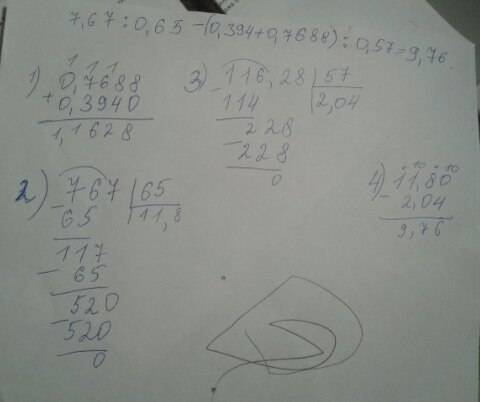 7,67 : 0,65 - (0,394 + 0,7688) : 0,57 = 9,76
1) 1 1 1
0,7688
+ 0,3940
1,1628
2) - 767 | 65
65 | 11,8
117
- 65
520
- 520
0
3) - 116,28 | 57
114 | 2,04
228
- 228
0
4) 10 10
- 11,80
2,04
9,76